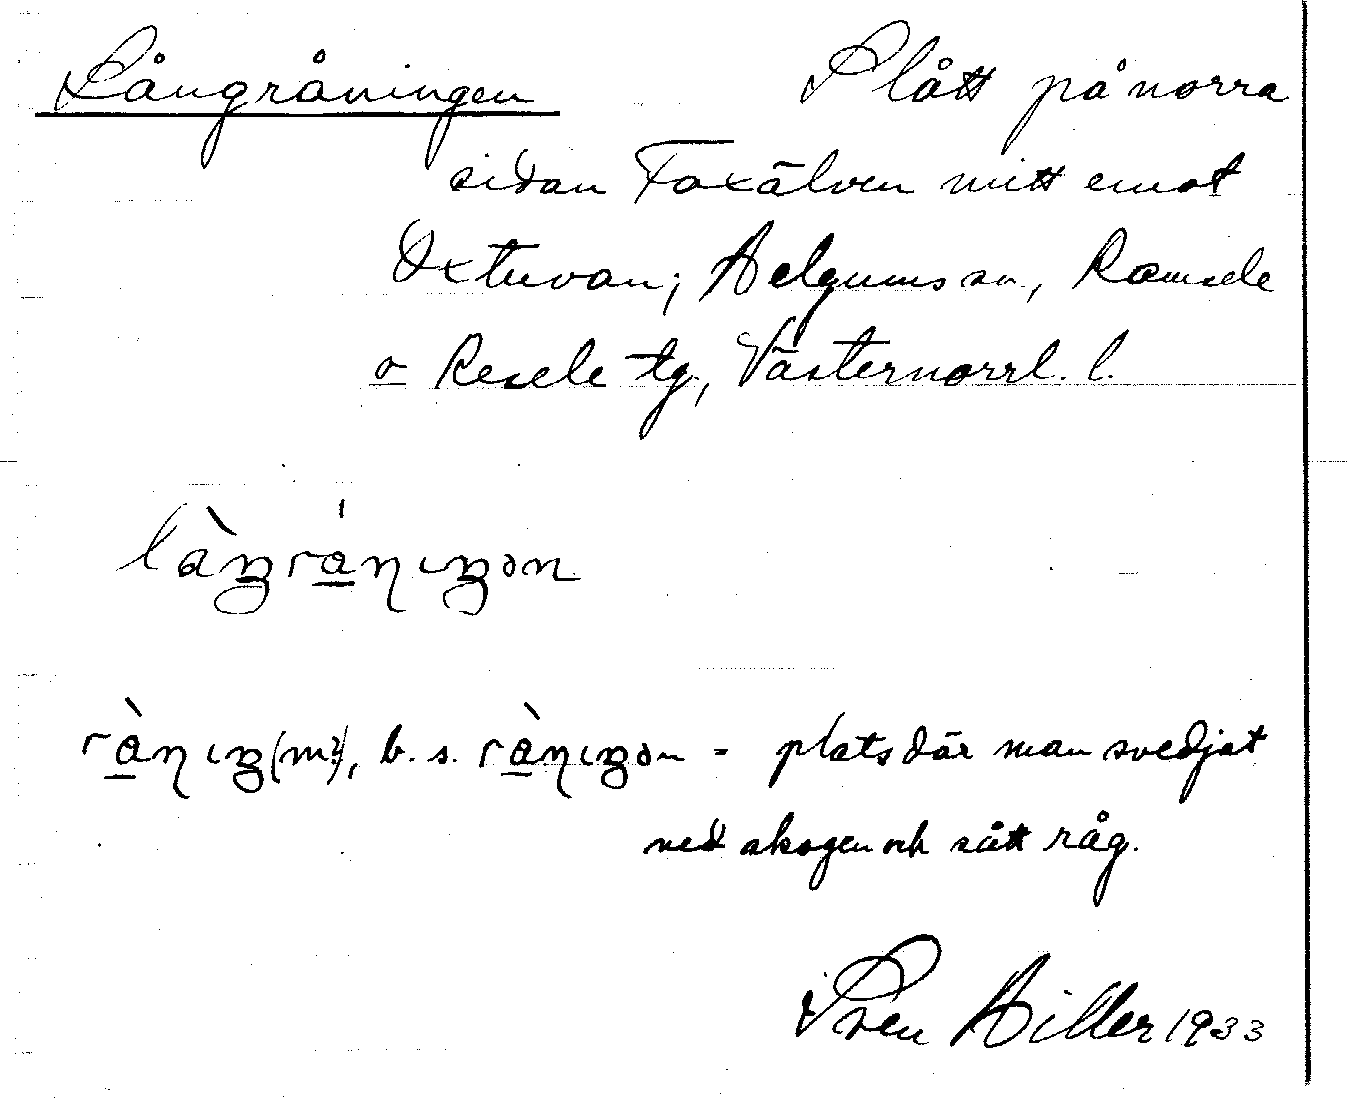 Långråningen Slått på norra
sidan Faxälven mitt emot
Oxtuvan; Helgums sn, Ramsele
o Resele tg, Västernorrl. l.
là̱ŋrá̱ɳɩŋən
rà̱ɳɩŋ (m?), b. s. rà̱ɳɩŋən = plats där man svedjat
ned skogen och sått råg.
Sven Hiller 1933